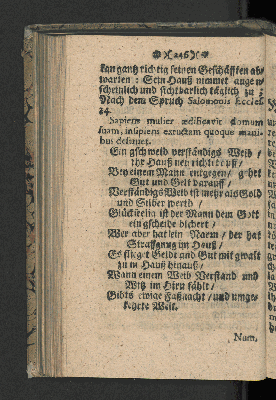 (246)
kan gantz richtig seinen Geschäfften ab-
warten: Sein Hauß nimmet augen-
scheinlich und sichtbarlich täglich zu:
Nach dem Spruch Salomonis Eccles.
24.
Sapiens mulier ædificavit domum
suam, insipiens extructam quoque mani-
bus destruet.
Ein gschweid verständigs Weib /
ihr Hauß neu richtet uff /
Bey einem Mann entgegen / g'het
Gut und Gelt darauff /
Verständigs Weib ist mehr als Gold
und Silber werth /
Glückselig ist der Mann dem Gott
ein gscheide bschert /
Wer aber hat ein Närrin / der hat
Straff gnug im Hauß /
Es flieget Geldt und Gut mit gwalt
zu im Hauß hinauß /
Wann einem Weib Verstand und
Witz im Hirn fählt /
Gibts ewige Faßnacht / und umge-
kehrte Welt.
Num,